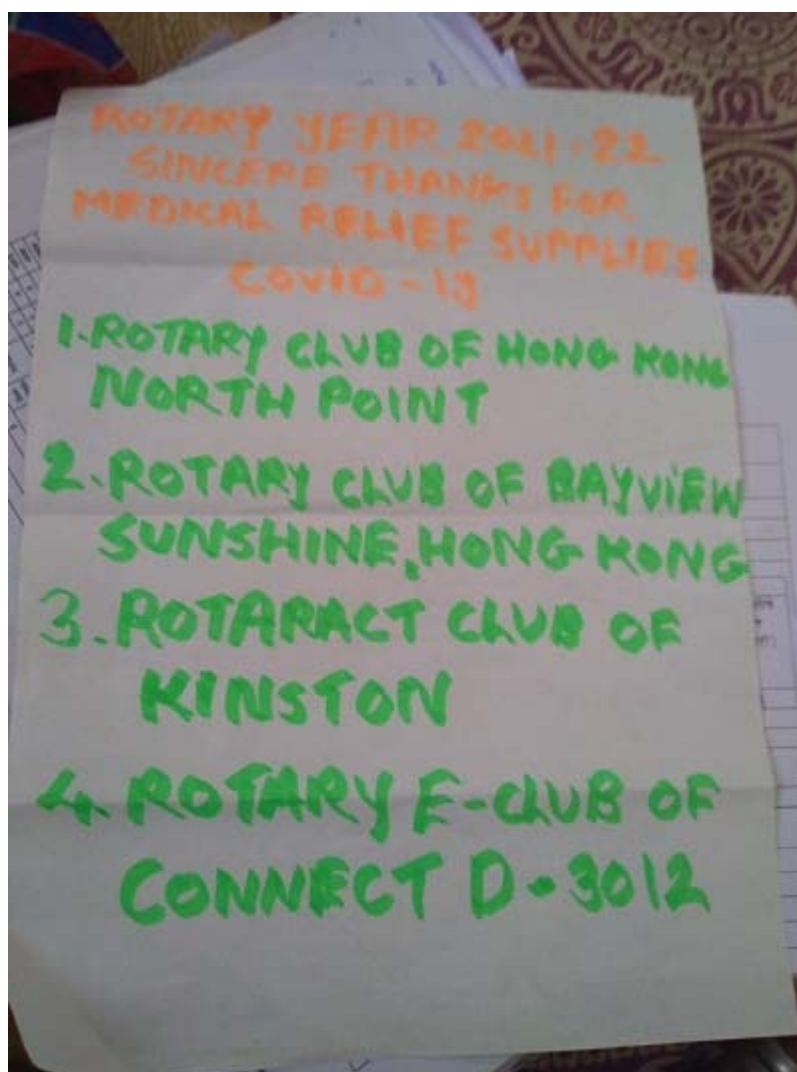 ROTARY YEAR 2021-22
SINCERE THANKS FOR
MEDICAL RELIEF SUPPLIES
COVID-19
1. ROTARY CLUB OF HONG KONG
NORTH POINT
2. ROTARY CLUB OF BAYVIEW
SUNSHINE, HONG KONG
3. ROTARACT CLUB OF
KINSTON
4. ROTARY E-CLUB OF
CONNECT D-3012